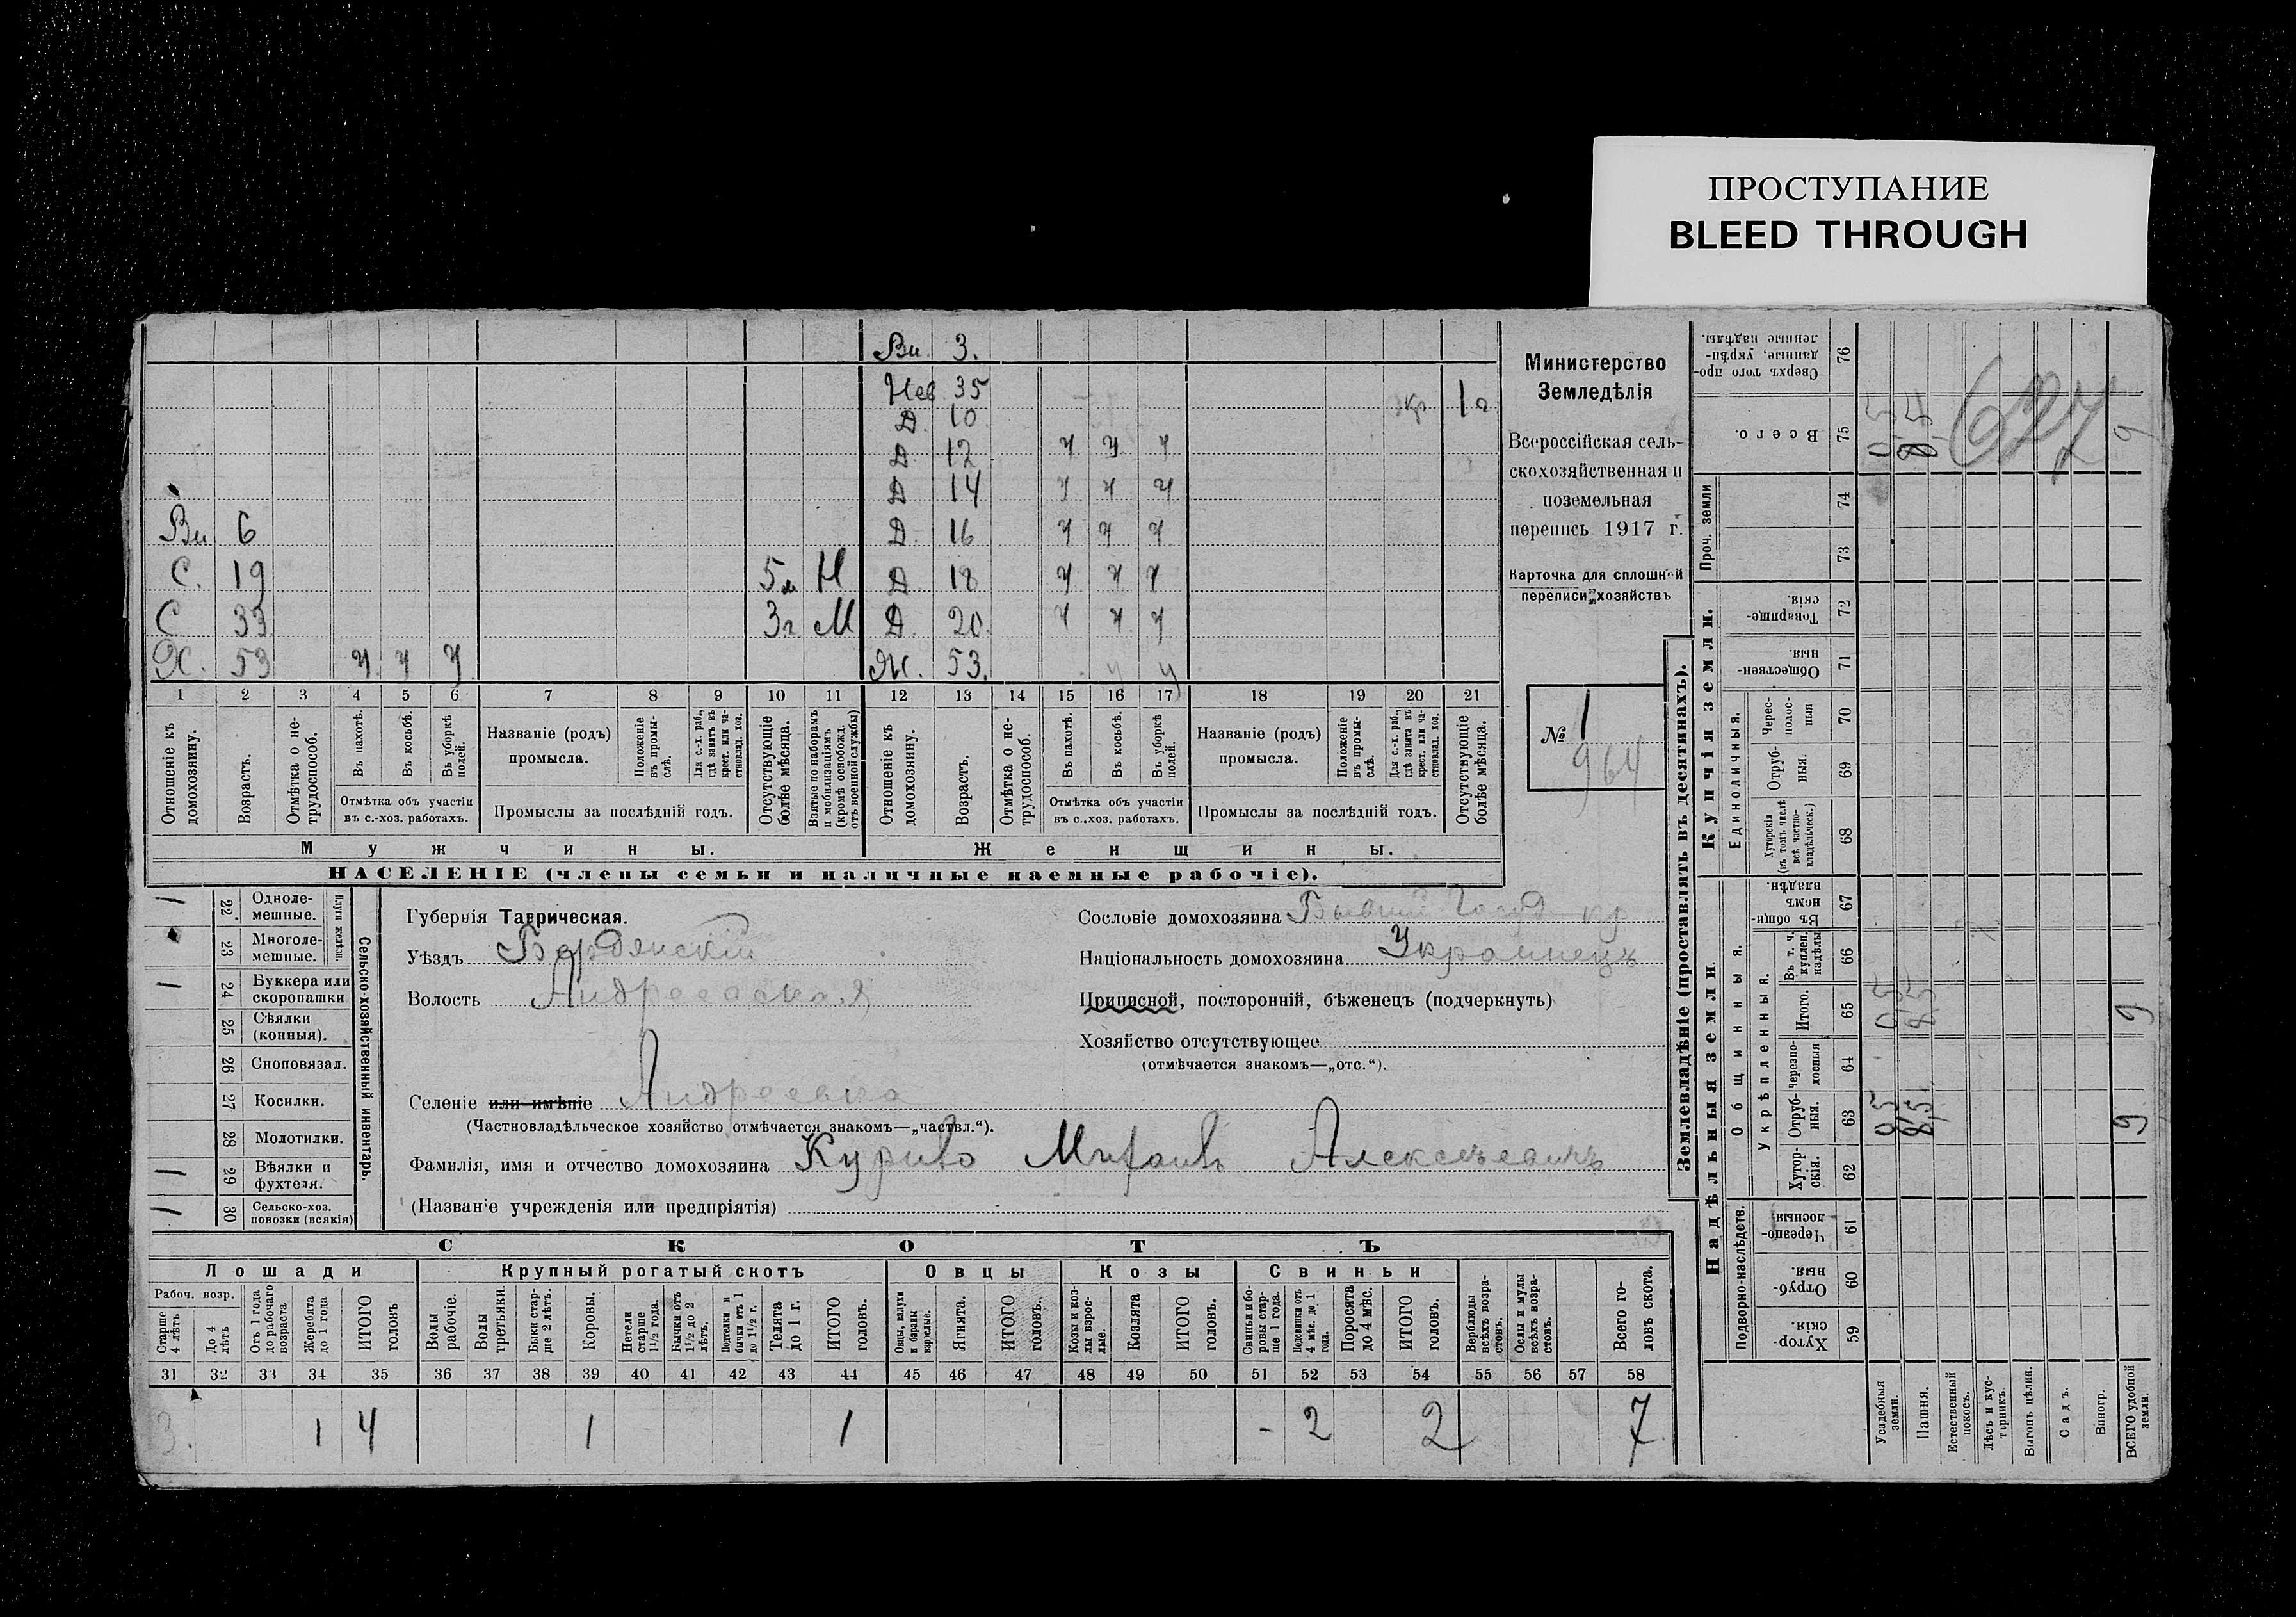 ПРОСТУПАНИЕ
BLEED THROUGH
Ви 3.
Нев 35 1 г
Д. 10
Д 12 ч ч ч
Д 14 ч ч ч
Ви 6 Д. 16 ч ч ч
С. 19 5 м Н Д. 18 ч ч ч
С 33 3 г М Д. 20. ч ч ч
Х. 53 ч ч ч Ж. 53. ч ч
1 2 3 4 5 6 7 8 9 10 11 12 13 14 15 16 17 18 19 20 21
Отношеніе къ домохозяину.
Возрастъ.
Отмѣтка о не-трудоспособ.
Въ пахотѣ.
Въ косьбѣ.
Въ уборкѣ полей.
Отмѣтка объ участіи
въ с.-хоз. работахъ.
Названіе (родъ)
промысла.
Положеніе въ промы-слѣ.
Для с.-х. раб., гдѣ занятъ въ крест. или ча-стновлад. хоз.
Промыслы за послѣдній годъ.
Отсутствующіе болѣе мѣсяца.
Взятые по наборамъ и мобилизаціямъ (кромѣ освобожд. отъ военной службы)
Отношеніе къ домохозяину.
Возрастъ.
Отмѣтка о не-трудоспособ.
Въ пахотѣ.
Въ косьбѣ.
Въ уборкѣ полей.
Отмѣтка объ участіи
въ с..хоз. работахъ.
Названіе (родъ)
промысла.
Положеніе въ промы-слѣ.
Для с.-х. раб., гдѣ занята въ крест. или ча-стновлад. хоз.
Промыслы за послѣдній годъ.
Отсутствующіе болѣе мѣсяца.
Мужчины. Женщины.
НАСЕЛЕНІЕ (члены семьи и наличные наемные рабочіе).
Министерство
Земледѣлія
Всероссійская сель-
скохозяйственная и
поземельная
перепись 1917 г.
Карточка для сплошной
переписи хозяйствъ
№ 1
964
1 22 Одноле-мешные.
23 Многоле-мешные.
Плуги желѣзн.
1 24 Буккера или скоропашки
25 Сѣялки (конныя).
26 Сноповязал.
27 Косилки.
28 Молотилки.
1 29 Вѣялки и фухтеля.
1 30 Сельско-хоз. повозки (всякія)
Сельско-хозяйственный инвентарь.
Губернія Таврическая.
Уѣздъ Бердянскій
Волость Андреевская
Селеніе или имѣніе Андреевка
(Частновладѣльческое хозяйство отмѣчается знакомъ—„частвл.“).
Фамилія, имя и отчество домохозяина Алексѣевичъ
(Названіе учрежденія или предпріятія)
Сословіе домохозяина Бывшій Госуд кр
Національность домохозяина Украинецъ
Приписной, посторонній, бѣженецъ (подчеркнуть)
Хозяйство отсутствующее
(отмѣчается знакомъ—„отс.“).
СКОТЪ
Лошади Крупный рогатый скотъ Овцы Козы Свиньи
Рабоч. возр.
Старше 4 лѣтъ
До 4 лѣтъ
Отъ 1 года до рабочаго возраста
Жеребята до 1 года
ИТОГО головъ
Волы рабочіе.
Волы третьяки.
Быки стар-ше 2 лѣтъ.
Коровы.
Нетели старше 1½ года.
Бычки отъ 1½ до 2 лѣтъ.
Подтелки и бычки отъ 1 до 1½ г.
Телята до 1 г.
ИТОГО головъ.
Овцы, валухи и бараны взрослые.
Ягнята.
ИТОГО головъ.
Козы и коз-лы взрос-лые.
Козлята
ИТОГО головъ.
Свиньи и бо-ровы стар-ше 1 года.
Подсвинки отъ 4 мѣс. до 1 года.
Поросята до 4 мѣс.
ИТОГО головъ.
Верблюды всѣхъ возра-стовъ.
Ослы и мулы всѣхъ возра-стовъ.
Всего го-ловъ скота.
31 32 33 34 35 36 37 38 39 40 41 42 43 44 45 46 47 48 49 50 51 52 53 54 55 56 57 58
3. 1 4 1 1 - 2 2 7
Землевладѣніе (проставлять въ десятинахъ).
Надѣльныя земли. Купчія земли.
Подворно-наслѣдств. Общинныя.
Укрѣпленныя. Единоличныя. Проч. земли
Сверхъ того про-данные, укрѣп-ленные надѣлы. 76
Всего. 75
74
73
Товарище-скія. 72
Обществен-ныя. 71
Черес-полос-ныя 70
Отруб-ныя. 69
Хуторскія (въ томъ числѣ всѣ частно-владѣльческ.) 68
Въ общин-номъ владѣн. 67
Въ т. ч. куплен. надѣлы 66
Итого. 65
Черезпо-лосныя 64
Отруб-ныя. 63
Хутор-скія. 62
Черезпо-лосныя 61
Отруб-ныя. 60
Хутор-скія. 59
Усадебныя земли. 0,5 0,5 0,5
Пашня. 8,5 8,5 8,5
Естественный покосъ.
Лѣсъ и кус-тарникъ.
Выгонъ цѣлин.
Садъ.
Виногр.
ВСЕГО удобной земли. 9 9 9
627